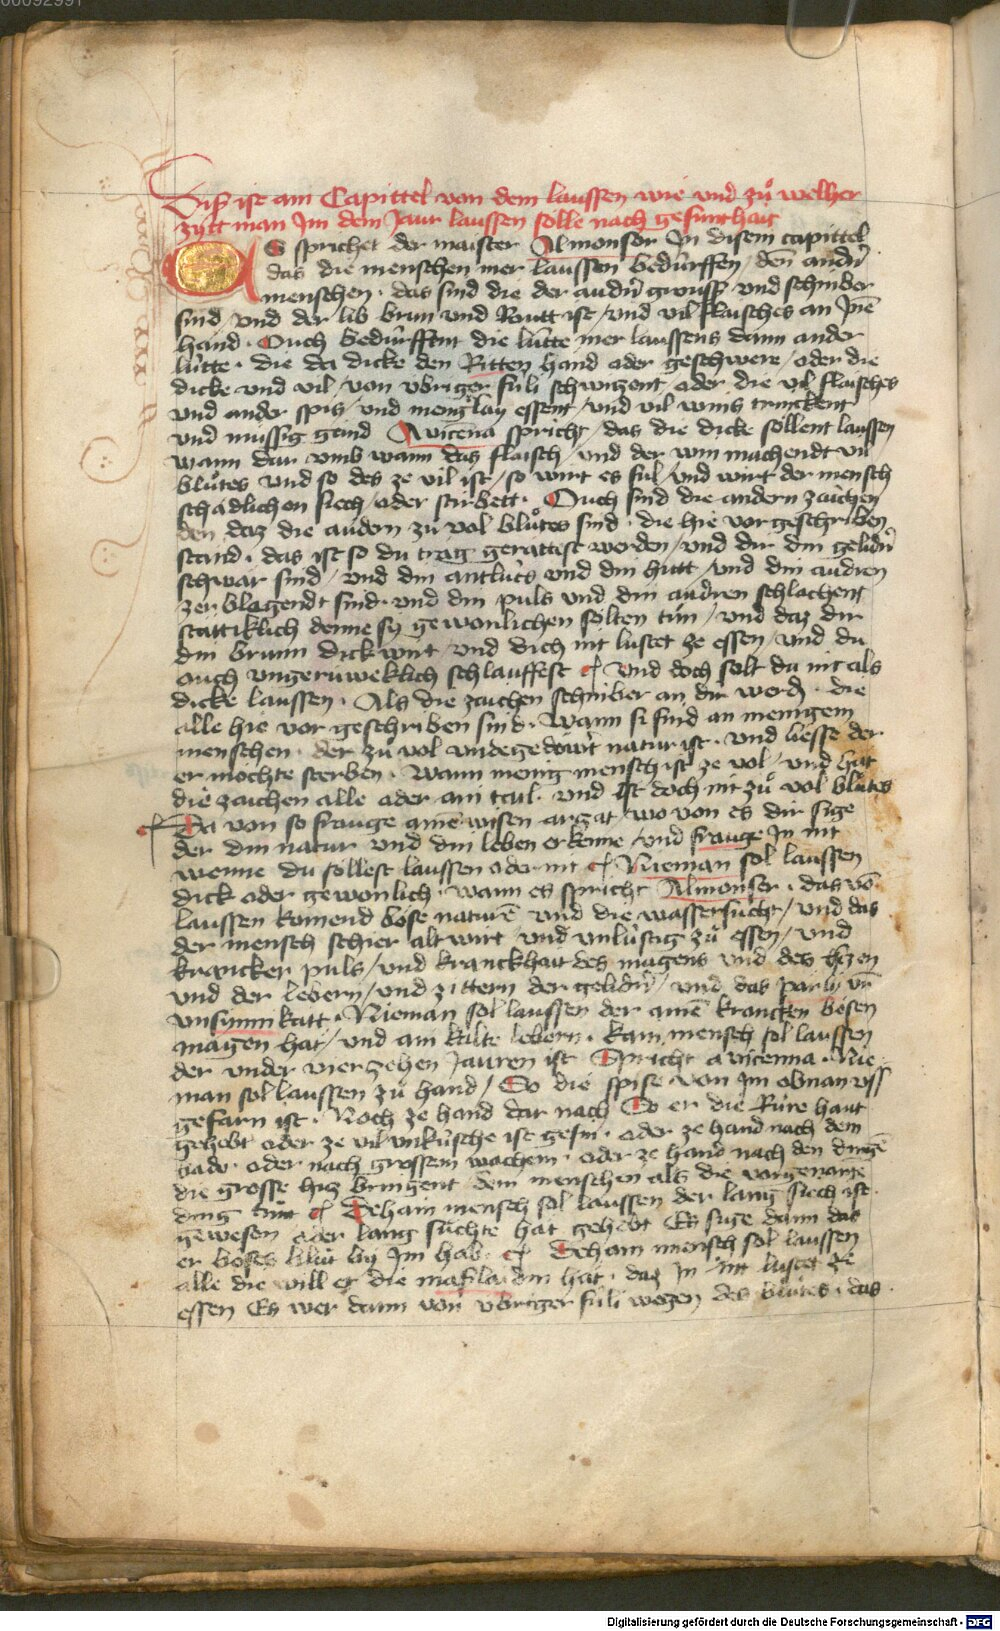 00092991
Diß ist am Capittel von dem laussen wie vnd zů welher
zytt man Jm dem Jaur laussen solle nach gesunthait
ES sprichet der maister Almonsor Jn disem capittel
das die menschen mer laussen bedürffen / den andn̄
menschen · das sind die der audn̄ grouß vnd schinber
sind / vnd der lib brun vnd Routt ist / vnd vil flaisches an Jnē
hand · Ouch bedürfftint die lütte mer laussens dann ander
lütte · die da dicke den Ritten hand oder geschwere / oder die
dicke vnd vil / von vbriger füli schwizent / oder die vil flaisches
vnd ander spis / vnd menglay essent / vnd vil wins trinckent
vnd müssig gand Avicēna spricht / das die dicke söllent laussen
wann dar vmb wann das flaisch / vnd der win machendt vil
blůtes vnd so des ze vil ist / so wirt es ful / vnd wirt der mensch
schadlichen siech / oder stirbett · Ouch sind die andern zaichen
den daz die audorn zu vol blůtes sind · die hie vor geschriben
stand · das ist so du trag gerattest werden / vnd dir din gelidn̄
schwär sind / vnd din antlüts vnd din hutt / vnd din audren
zerblagendt sind · vnd din puls vnd din audren schlachent
stattiklich denne sy gewonlichen solten tün / vnd daz dir
din brunn dick wirt / vnd dich nit lustet ze essen / vnd du
ouch vngeruweklich schlauffest ¶ Vnd doch solt du nit als
dicke laussen · Als die zaichen schinber an dir werdn̄ · die
alle hie vor geschriben sind · Wann si sind an menigem
menschen · der zů vol vndegedöwt natur ist · vnd liesse der
er möchte sterben · Wann menig mensch ist ze vol / vnd hät
die zaichen alle oder ain tail · vnd Ist doch nit zů vol blůtes
¶ Da von so frauge ainē wisen arzat / wo von es dir sige
der din natur vnd din leben erkenne / vnd frauge Jn nit
wenne du söllest laussen oder nit ¶ Nieman sol laussen
dick oder gewonlich · wann es spricht Almonsor · das vō
laussen komend böse naturē vnd die wassersücht / vnd das
der mensch schier alt wirt / vnd vnlüstig zů essen / vnd
krancker puls / vnd kranckhait des magens vnd des hʼzen
vnd der lebern / vnd zittern der gelidn̄ / vnd das parlij vn̄
vnsinnikatt · Nieman sol laussen der ainē krancken bösen
magen hat / vnd ain kalte lebern · kain mensch sol laussen
der vnder vierzehen Jauren ist Spricht avicenna · Nie
man sol laussen zů hand / So die spise von Jm obnan vß
gefarn ist · Noch ze hand dar nach So er die Rüre haut
gehebt oder ze vil vnküsche ist gesin · oder ze hand nach dem
bade · oder nach grossem wachem · oder ze hand nach den dingē
die grosse hiz bringent dem menschen als die vorgenantē
ding tůnt ¶ Dehain mensch sol laussen der lang siech ist
gewesen oder lang süchte hat gehebt Es sige dann das
er böses blůt by Jm hab · ¶ Dehain mensch sol laussen
alle die will er die masslaidin hat · daz Jn nit lustet ze
essen Es wer dann von vbriger füli wegen des blůtes · das
Digitalisierung gefördert durch die Deutsche Forschungsgemeinschaft - DFG